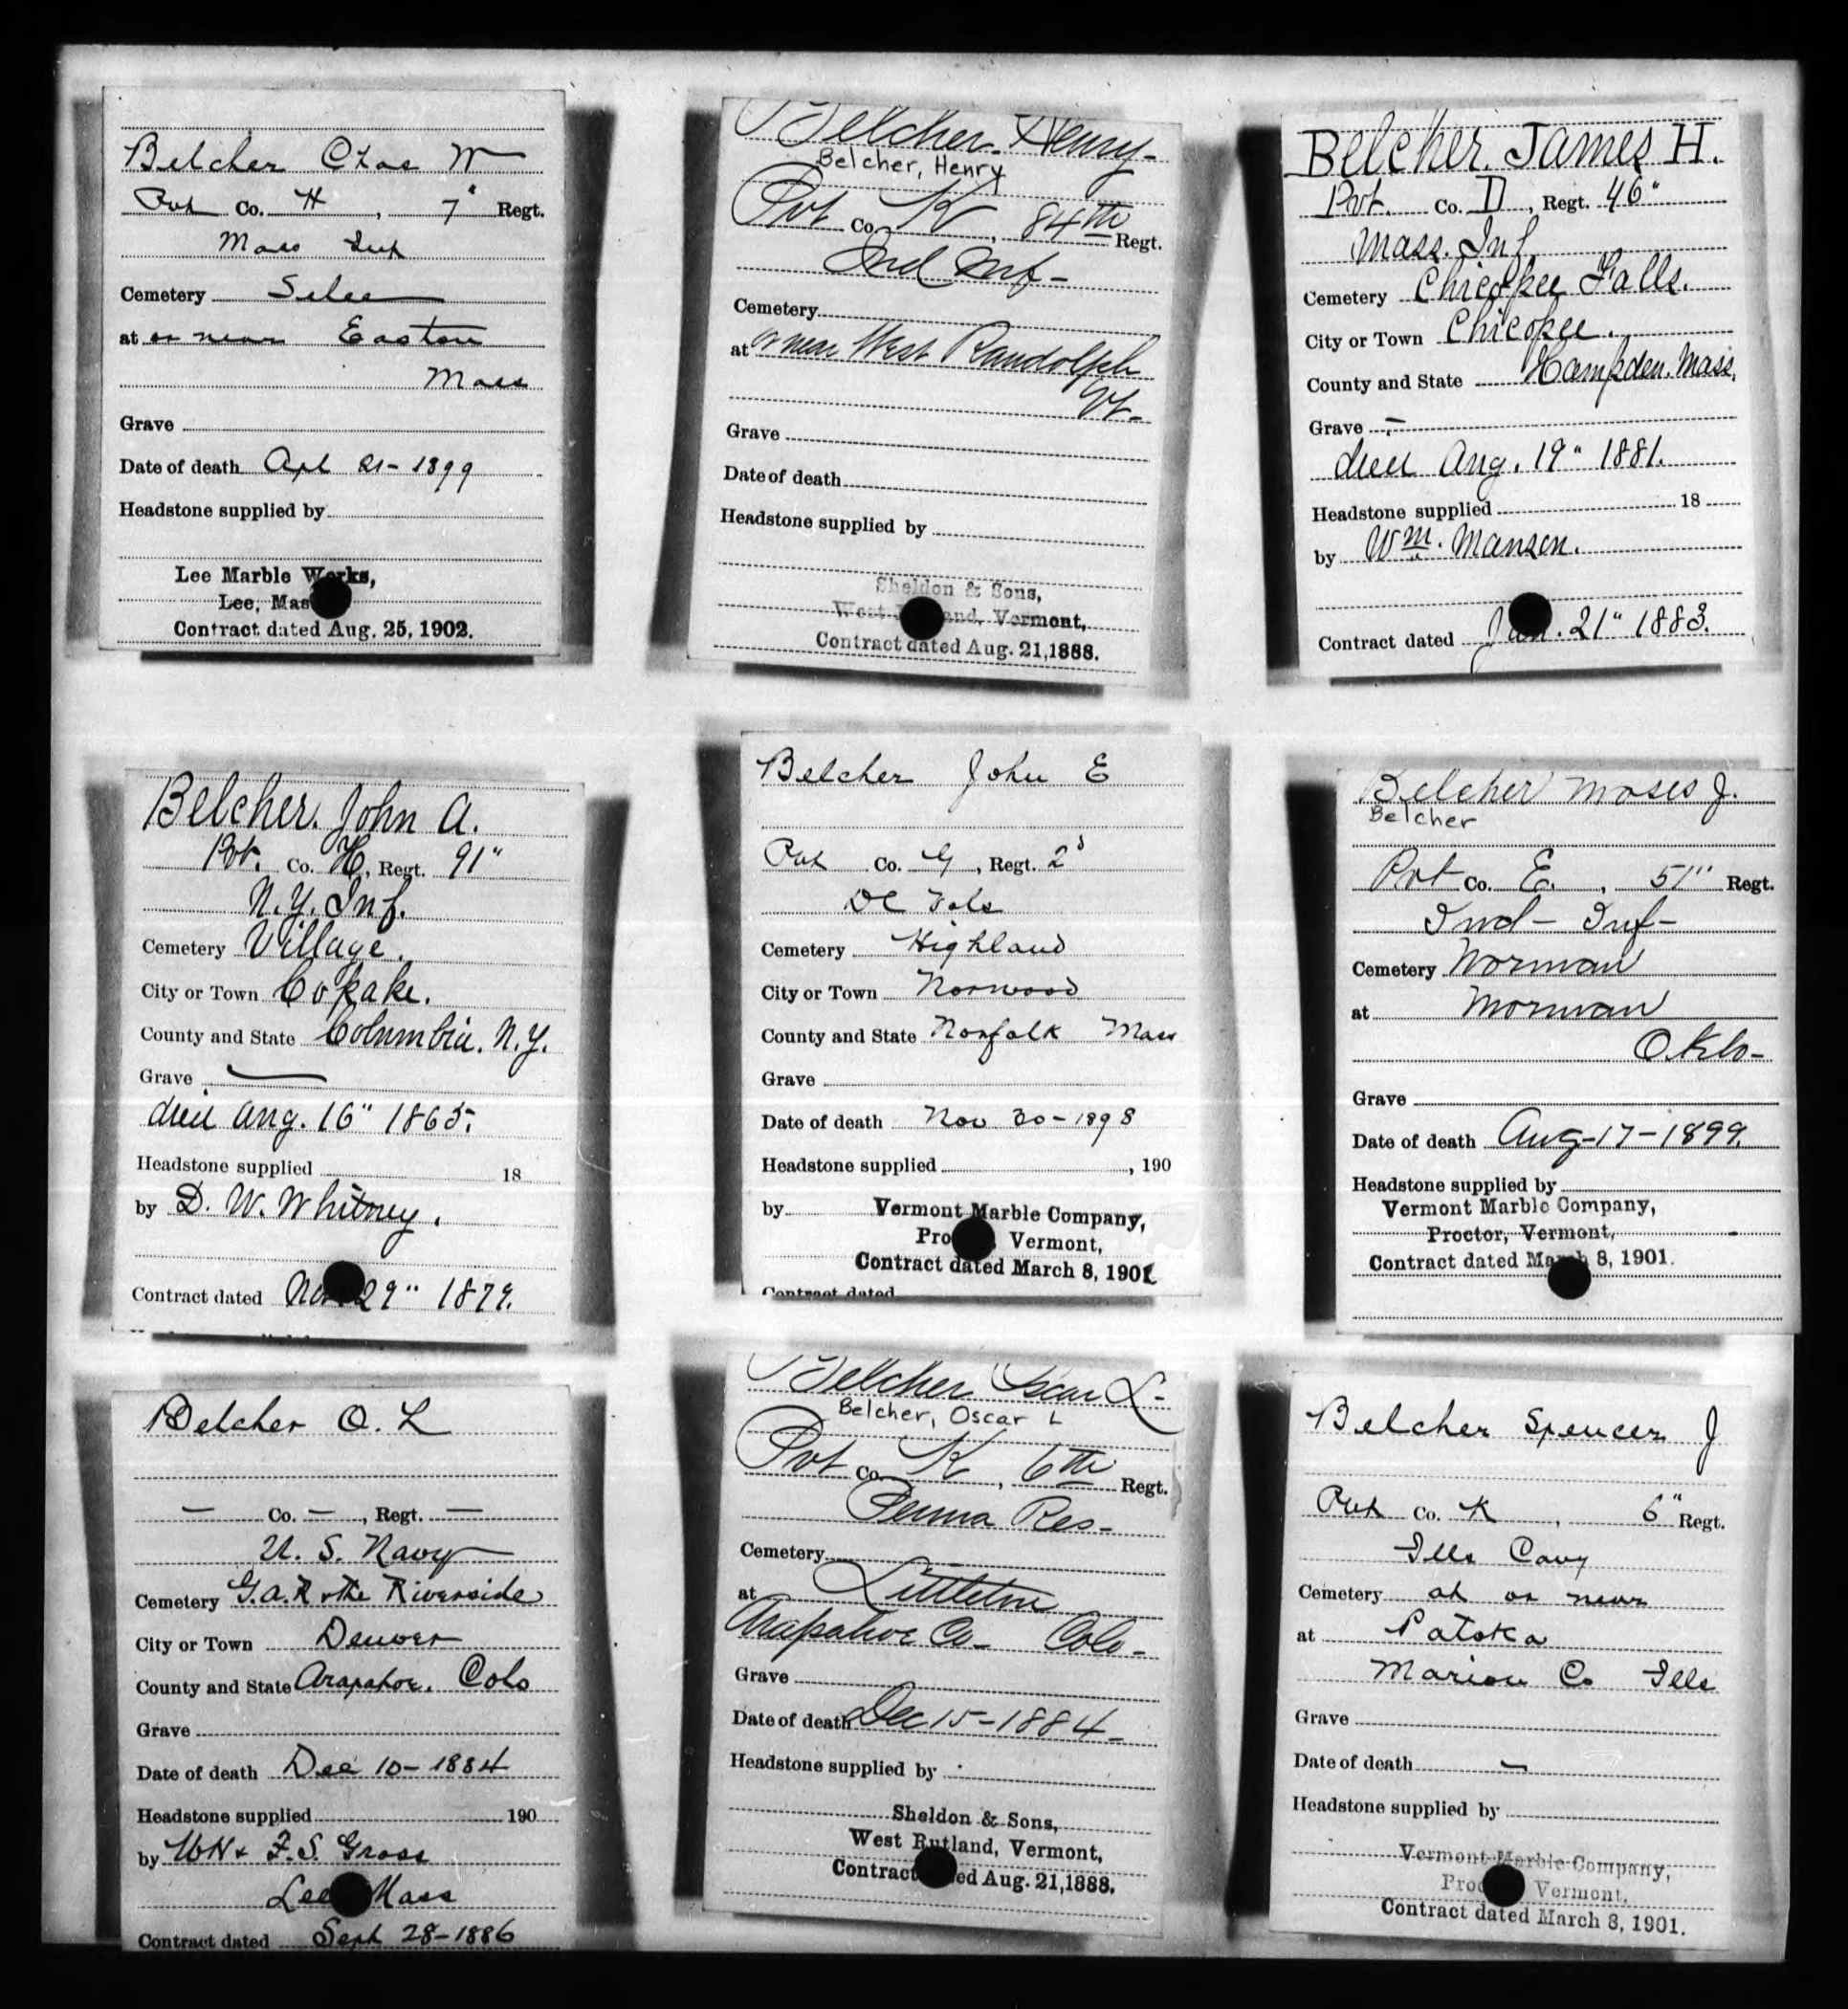 Belcher Chas W
Pvt Co. H, 7" Regt.
Mass Inf
Cemetery
at or near Easton
Mass
Grave
Date of death Apl 21-1899
Headstone supplied by
Lee Marble Works,
Lee, Mas
Contract dated Aug. 25, 1902.
Belcher, Henry-
Belcher, Henry
Pvt Co. K, 84th Regt.
Ind Inf-
Cemetery
at or near West Randolph
Vt-
Grave
Date of death
Headstone supplied by
Sheldon & Sons,
West Rutland, Vermont,
Contract dated Aug. 21, 1888.
Belcher. James H.
Pvt. Co. D, Regt. 46"
Mass. Inf
Cemetery Chicopee Falls.
City or Town Chicopee.
County and State Hampden. Mass.
Grave -
died Aug. 19" 1881.
Headstone supplied 18
by Wm. Manson.
Contract dated Jan. 21" 1883.
Belcher. John A.
Pvt. Co. H, Regt. 91"
N.Y. Inf.
Cemetery Village.
City or Town Copake.
County and State Columbia. N.Y.
Grave —
died Aug. 16" 1865.
Headstone supplied 18
by D. W. Whitney.
Contract dated Nov. 29" 1879.
Belcher John E
Pvt Co. G, Regt. 2d
DC Vols
Cemetery Highland
City or Town Norwood
County and State Norfolk Mass
Grave
Date of death Nov 30-1898
Headstone supplied, 190
by Vermont Marble Company,
Proctor, Vermont,
Contract dated March 8, 1901
Contract dated
Belcher Moses J.
Belcher
Pvt Co. E., 51" Regt.
Ind- Inf-
Cemetery Norman
at Norman
Okla-
Grave
Date of death Aug-17-1899.
Headstone supplied by
Vermont Marble Company,
Proctor, Vermont,
Contract dated March 8, 1901.
Belcher O. L
— Co. —, Regt. —
U. S. Navy
Cemetery G.A.R the Riverside
City or Town Denver
County and State Arapahoe. Colo
Grave
Date of death Dec 10-1884
Headstone supplied 190
by WH & F.S. Gross
Lee Mass
Contract dated Sept 28-1886
Belcher Oscar L-
Belcher, Oscar L
Pvt Co. K, 6th Regt.
Penna Res-
Cemetery
at Littleton
Arapahoe Co- Colo-
Grave
Date of death Dec 15-1884-
Headstone supplied by
Sheldon & Sons,
West Rutland, Vermont,
Contract dated Aug. 21, 1888.
Belcher Spencer J
Pvt Co. K, 6" Regt.
Ills Cavy
Cemetery at or near
at Patoka
Marion Co Ills
Grave
Date of death —
Headstone supplied by
Vermont Marble Company,
Proctor, Vermont.
Contract dated March 8, 1901.